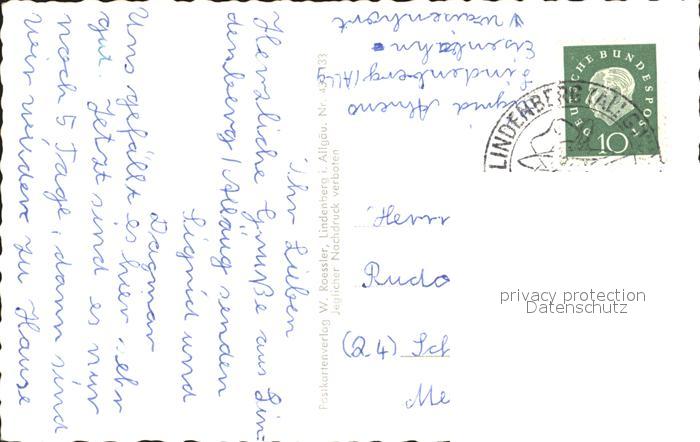 Ihr Lieben
Herzliche Grüße aus Lin-
denberg / Allgäu senden
Sigrid und
Dagmar
Uns gefällt es hier sehr
gut. Jetzt sind es nur
noch 5 Tage, dann sind
wir wieder zu Hause
Postkartenverlag W. Roessler, Lindenberg i. Allgäu. Nr.
Jeglicher Nachdruck verboten
Sigrid
Lindenberg / Allg
Eisenbahn-
Waisenhort
DEUTSCHE BUNDESPOST
10
LINDENBERG (ALLGÄU)
Herrn
Rudo
(24) Sch
Me
privacy protection
Datenschutz